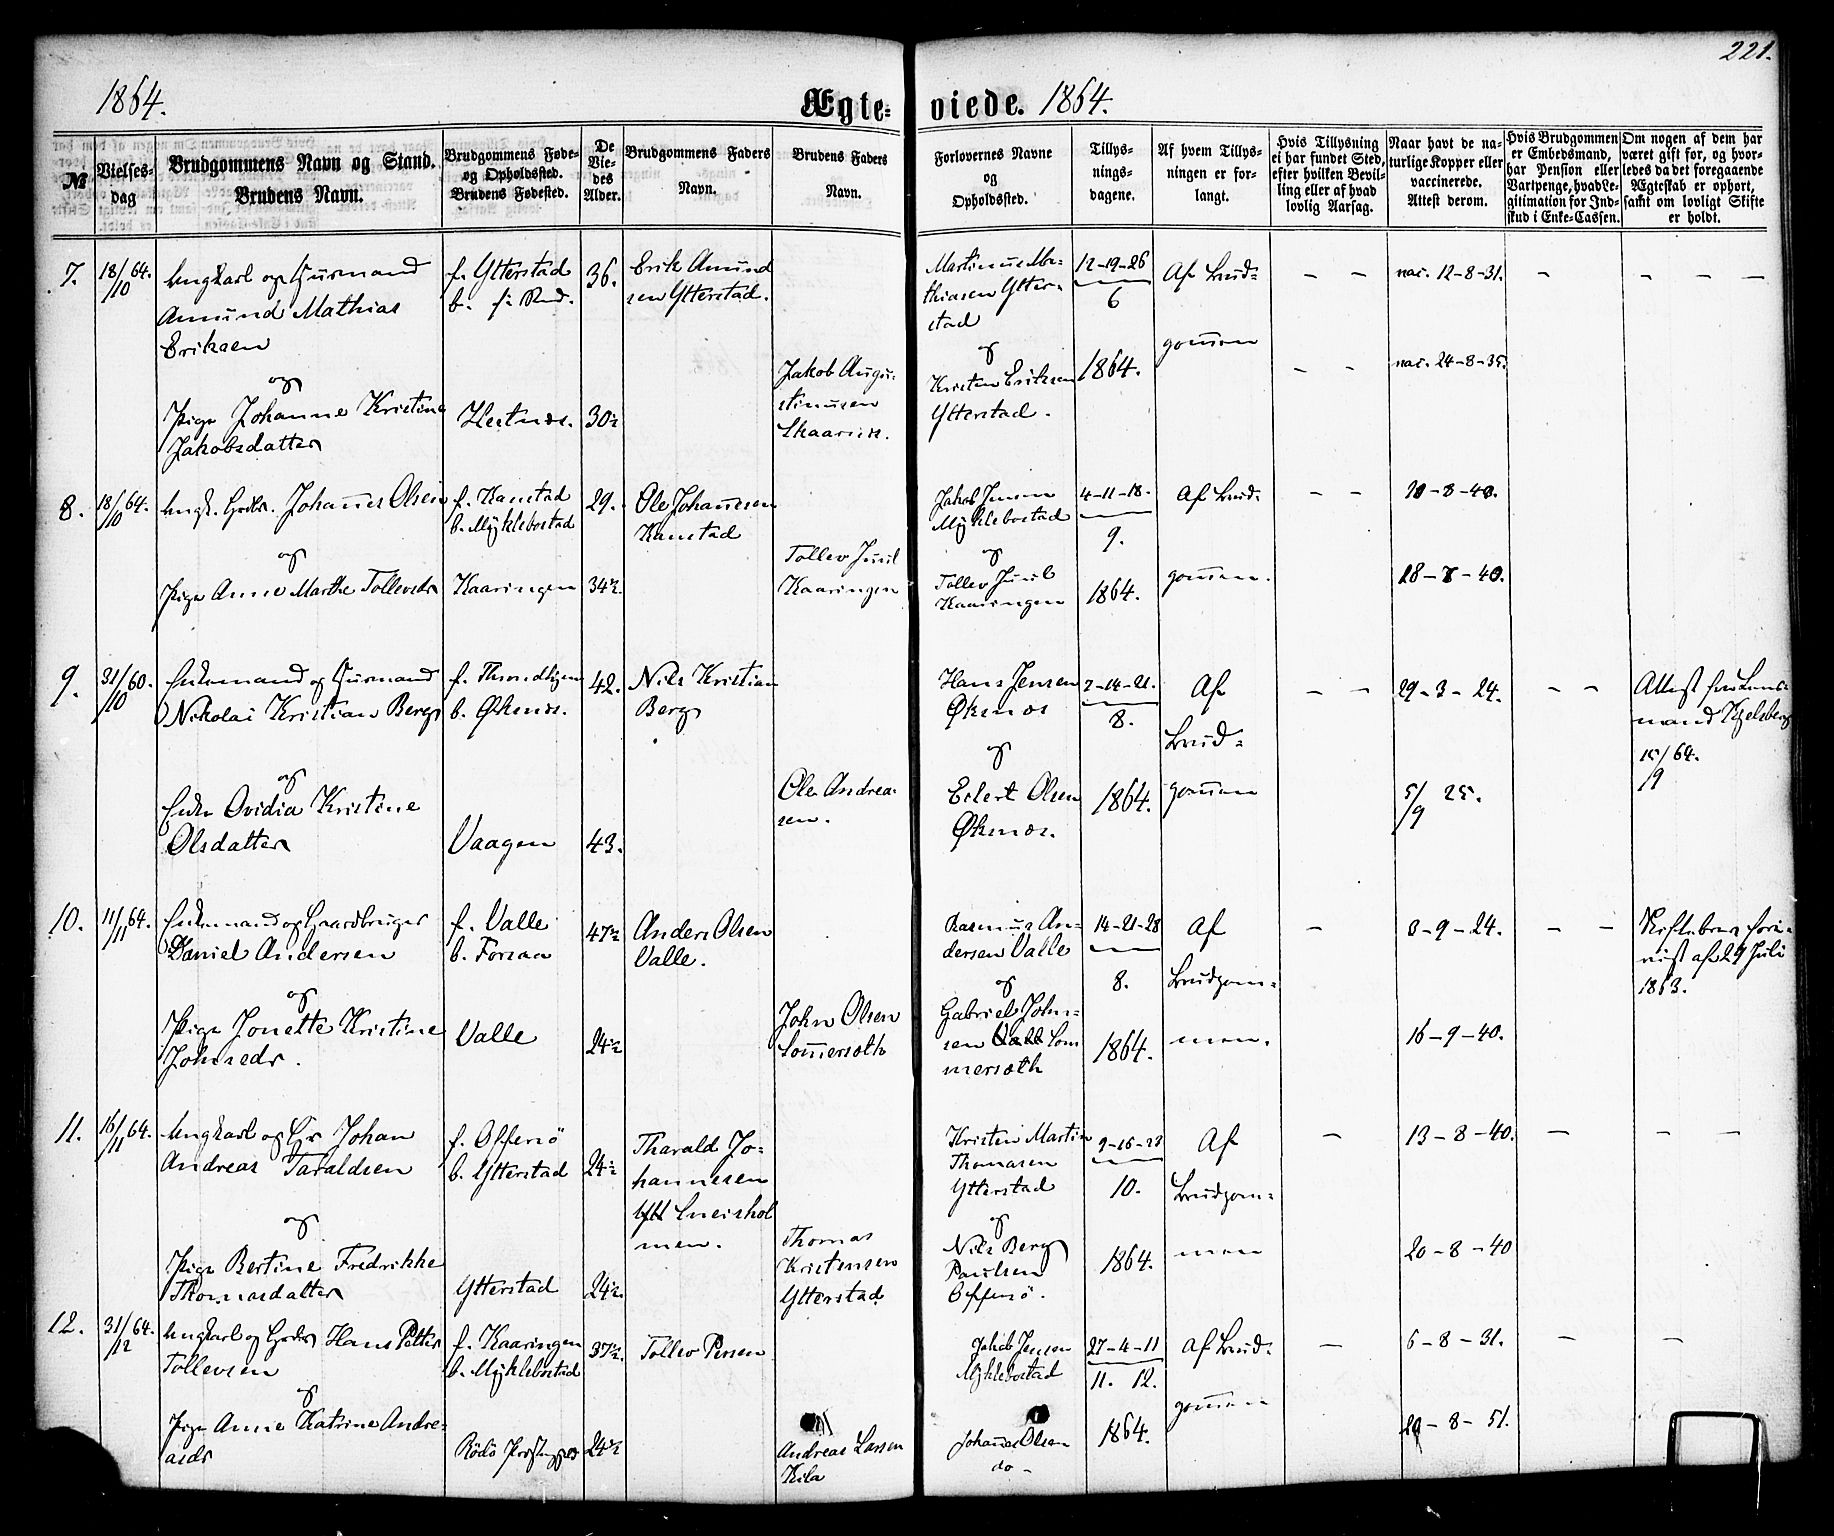 221.
1864.
Ægte-
viede. 1864.
№
Vielses-
dag
Brudgommens Navn og Stand.
Brudens Navn.
Brudgommens Føde-
og Opholdssted.
Brudens Fødested.
De
Vie-
des
Alder.
Brudgommens Faders
Navn.
Brudens Faders
Navn.
Forlovernes Navne
og
Opholdssted.
Tillys-
nings-
dagene.
Af hvem Tillys-
ningen er for-
langt.
Hvis Tillysning
ei har fundet Sted,
efter hvilken Bevil-
ling eller af hvad
lovlig Aarsag.
Naar havt de na-
turlige Kopper eller
vaccinerede.
Attest derom.
Hvis Brudgommen
er Embedsmand,
har Pension eller
Vartpenge, hvad Le-
gitimation for Ind-
skud i Enke-Cassen.
Om nogen af dem har
været gift for, og hvor-
ledes da det foregaaende
Ægteskab er ophørt,
samt om lovligt Skifte
er holdt.
7.
18/10 64.
Ungkarl og Huusmand
Amund Mathias
Eriksen
og
Pige Johanne Kristine
Jakobsdatter
f. Ytterstad
b.
Hestnæs.
36.
30½
Erik Amund
sen Ytterstad.
Jakob Augu-
stinusen
Martinus Ma-
thiasen Ytter-
stad
og
Kristen Eriksen
Ytterstad.
12-19-26
6
1864.
Af Brud-
gommen
— —
— —
vac. 12-8-31.
vac. 24-8-35.
—
— — —
8.
18/10 64.
Ungk. Gaardbr. Johannes Olsen
og
Pige Anne Marthe Tollevsdr
f. Kanstad
b. Myklebostad
Kaaringen
29.
34½
Ole Johannesen
Kanstad
Tollev Juul
Kaaringen
Jakob Jensen
Myklebostad
og
Tollev Juul
Kaaringen
4-11-18.
9.
1864.
Af Brud-
gommen.
— —
10-8-40.
18-8-40.
9.
31/10 60.
Enkemand og Huusmand
Nikolai Kristian Berg
og
Enke Ovidia Kristine
Olsdatter
f. Throndhjem
b. Øksnæs.
Vaagen
42.
43.
Nils Kristian
Berg
Ole Andrea-
sen.
Hans Jensen
Øksnæs
og
Edert Olsen
Øksnæs.
7-14-21.
8.
1864.
Af
Brud-
gommen
— —
29-3-24.
5/9 25.
— —
Attest fra Lens-
mand Kjelsberg
15/9 64.
10.
11/11 64.
Enkemand og Gaardbruger
Daniel Andersen
og
Pige Jonette Kristine
Johnsdr.
f. Valle
b. Forsaa
Valle
47½
24½
Anders Olsen
Valle.
John Olsen
Sommersæth
Rasmus An-
dersen Valle
og
Gabriel John-
sen Valle Som
mersæth
14-21-28
8.
1864.
Af
Brudgom-
men.
—
8-9-24.
16-9-40.
— —
af 29 Juli
1863.
11.
16/11 64.
Ungkarl og Gr Johan
Andreas Taraldsen
og
Pige Bertine Fredrikke
Thomasdatter
f. Offersö
b. Ytterstad
Ytterstad
24½
24½.
Tharald Jo-
hannesen
Ytt Sneishol
men.
Thomas
Kristensen
Ytterstad
Kristen Martin
Thomasen
Ytterstad
og
Nils Berg
Paulsen
Offersö.
9-16-23
10.
1864.
Af
Brudgom-
men
—
13-8-40.
20-8-40
—
— —
12.
31/12 64.
Ungkarl og Gaardbr Hans Petter
Tollevsen
og
Pige Anne Katrine Andre-
asdr
f. Kaaringen
b. Myklebostad
Rödö
37½.
24½
Tollev Persen
Andreas Larsen
Kila
Jakob Jensen
Myklebostad
Johannes Olsen
do -
27-4-11
11. 12.
1864.
Af Brud-
gommen
—
—
6-8-31.
29-8-51.
—
—